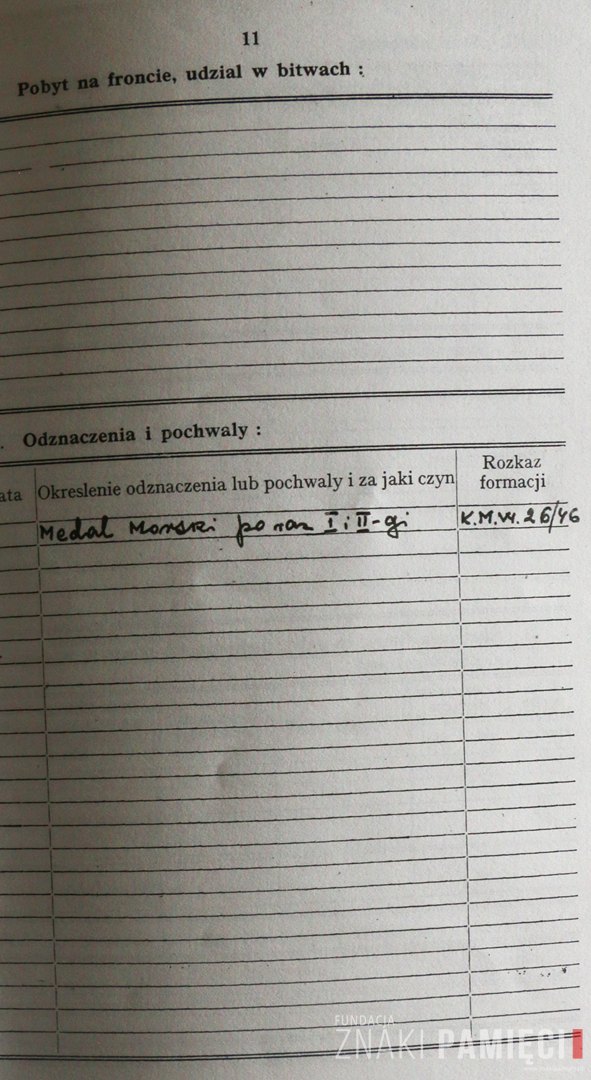 11
Pobyt na froncie, udzial w bitwach :
. Odznaczenia i pochwaly :
ata Okreslenie odznaczenia lub pochwaly i za jaki czyn Rozkaz formacji
Medal Morski po raz I i II-gi K.M.W. 26/46
FUNDACJA
ZNAKI PAMIĘCI